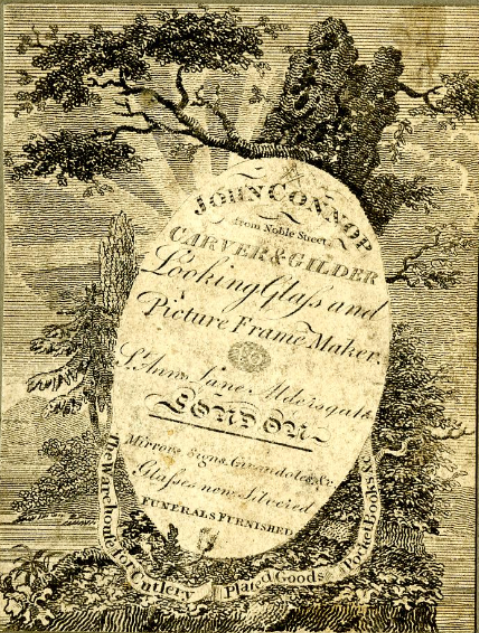 JOHN CONNOP
from Noble Street
CARVER & GILDER
Looking Glaſs and
Picture Frame Maker.
St. Anns Lane, Aldersgate
LONDON
Mirrors, Signs, Girandoles &c.
Glasses new Silvered
FUNERALS FURNISHED.
The Warehouse for Cutlery Plated Goods Pocket Books &c.